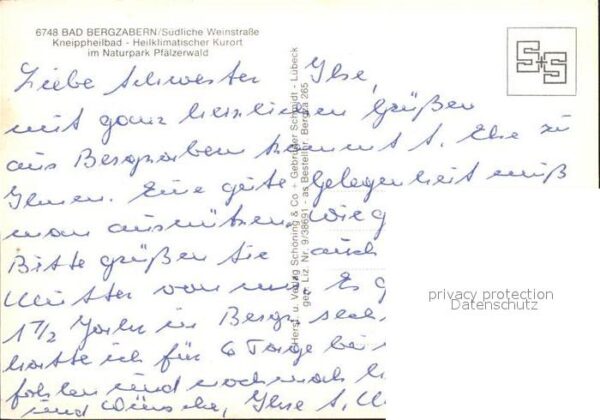 6748 BAD BERGZABERN/Südliche Weinstraße
Kneippheilbad - Heilklimatischer Kurort
im Naturpark Pfälzerwald
Liebe Schwester Ilse,
mit ganz herzlichen Grüßen
aus Bergzabern kommt S. Ilse zu
Ihnen. Eine gute Gelegenheit muß
man ausnützen. Wie g
Bitte grüßen Sie auch
Mutter von mir. Es g
1 1/2 Jahr in Bergz.
hatte ich für 6 Tage
fohlen und nochmals
und Wünsche, Ilse S.
Herst. u. Verlag Schöning & Co + Gebrüder Schmidt - Lübeck
ges. Liz. Nr. 9/38691 - as Bestellnr. Bergza 265
S+S
privacy protection
Datenschutz